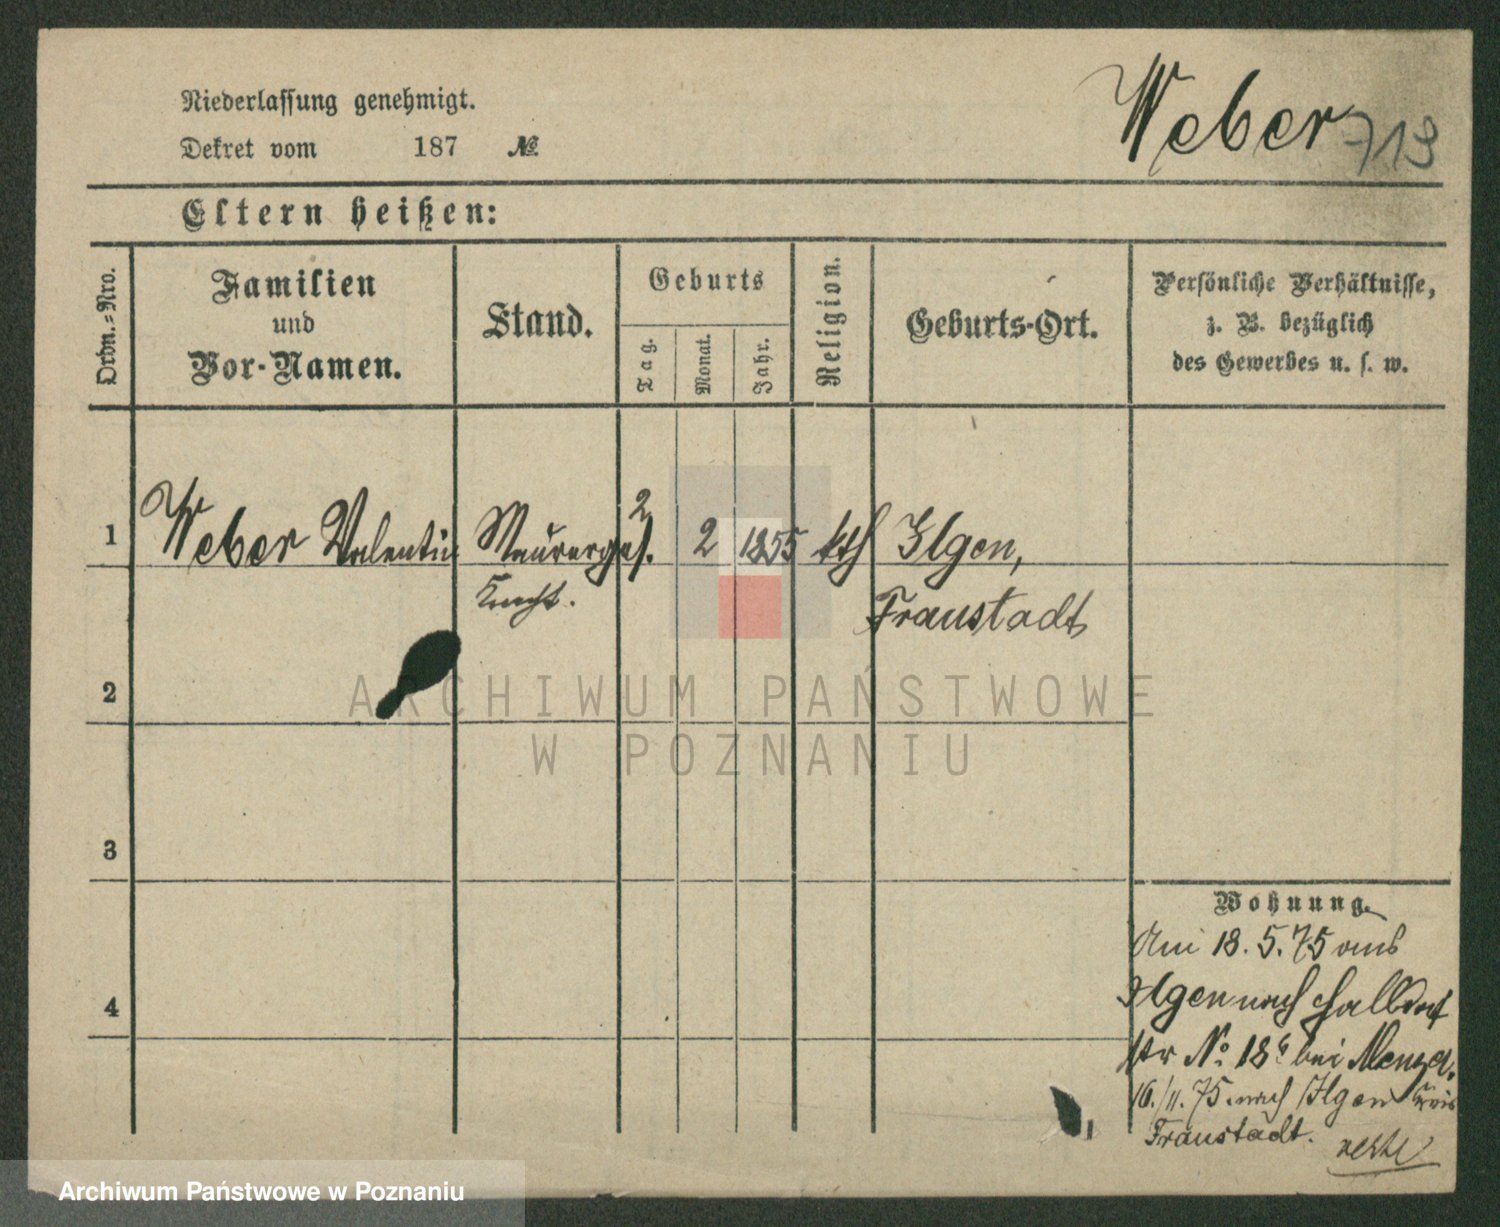 Weber
713
Niederlassung genehmigt.
Dekret vom 187 №
Eltern heißen:
Ordn.=Nro.
Familien
und
Vor-Namen.
Stand.
Geburts
Tag.
Monat.
Jahr.
Religion.
Geburts-Ort.
Persönliche Verhältnisse,
z. B. bezüglich
des Gewerbes u. s. w.
1 Weber Valentin Maurerges. 2 2 1855 kth Ilgen,
Knecht. Fraustadt
2
3
4
Wohnung.
Am 18. 5. 75 aus
Ilgen nach Halldorf
str No. 18 bei Menzel.
16./11. 75. nach Ilgen Kreis
Fraustadt.
ARCHIWUM PAŃSTWOWE
W POZNANIU
Archiwum Państwowe w Poznaniu